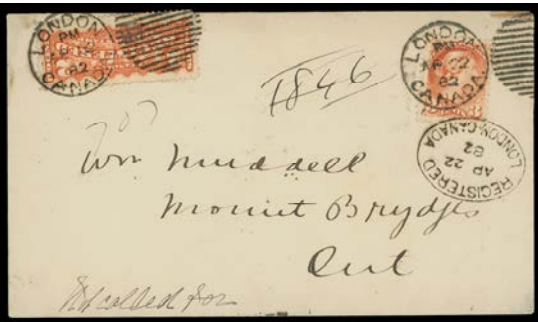 LONDON
PM
82
CANADA
LONDON
PM
82
CANADA
1846
REGISTERED
AP 22
82
LONDON-CANADA
707
Wm Muddell
Mount Brydges
Ont
Not called for